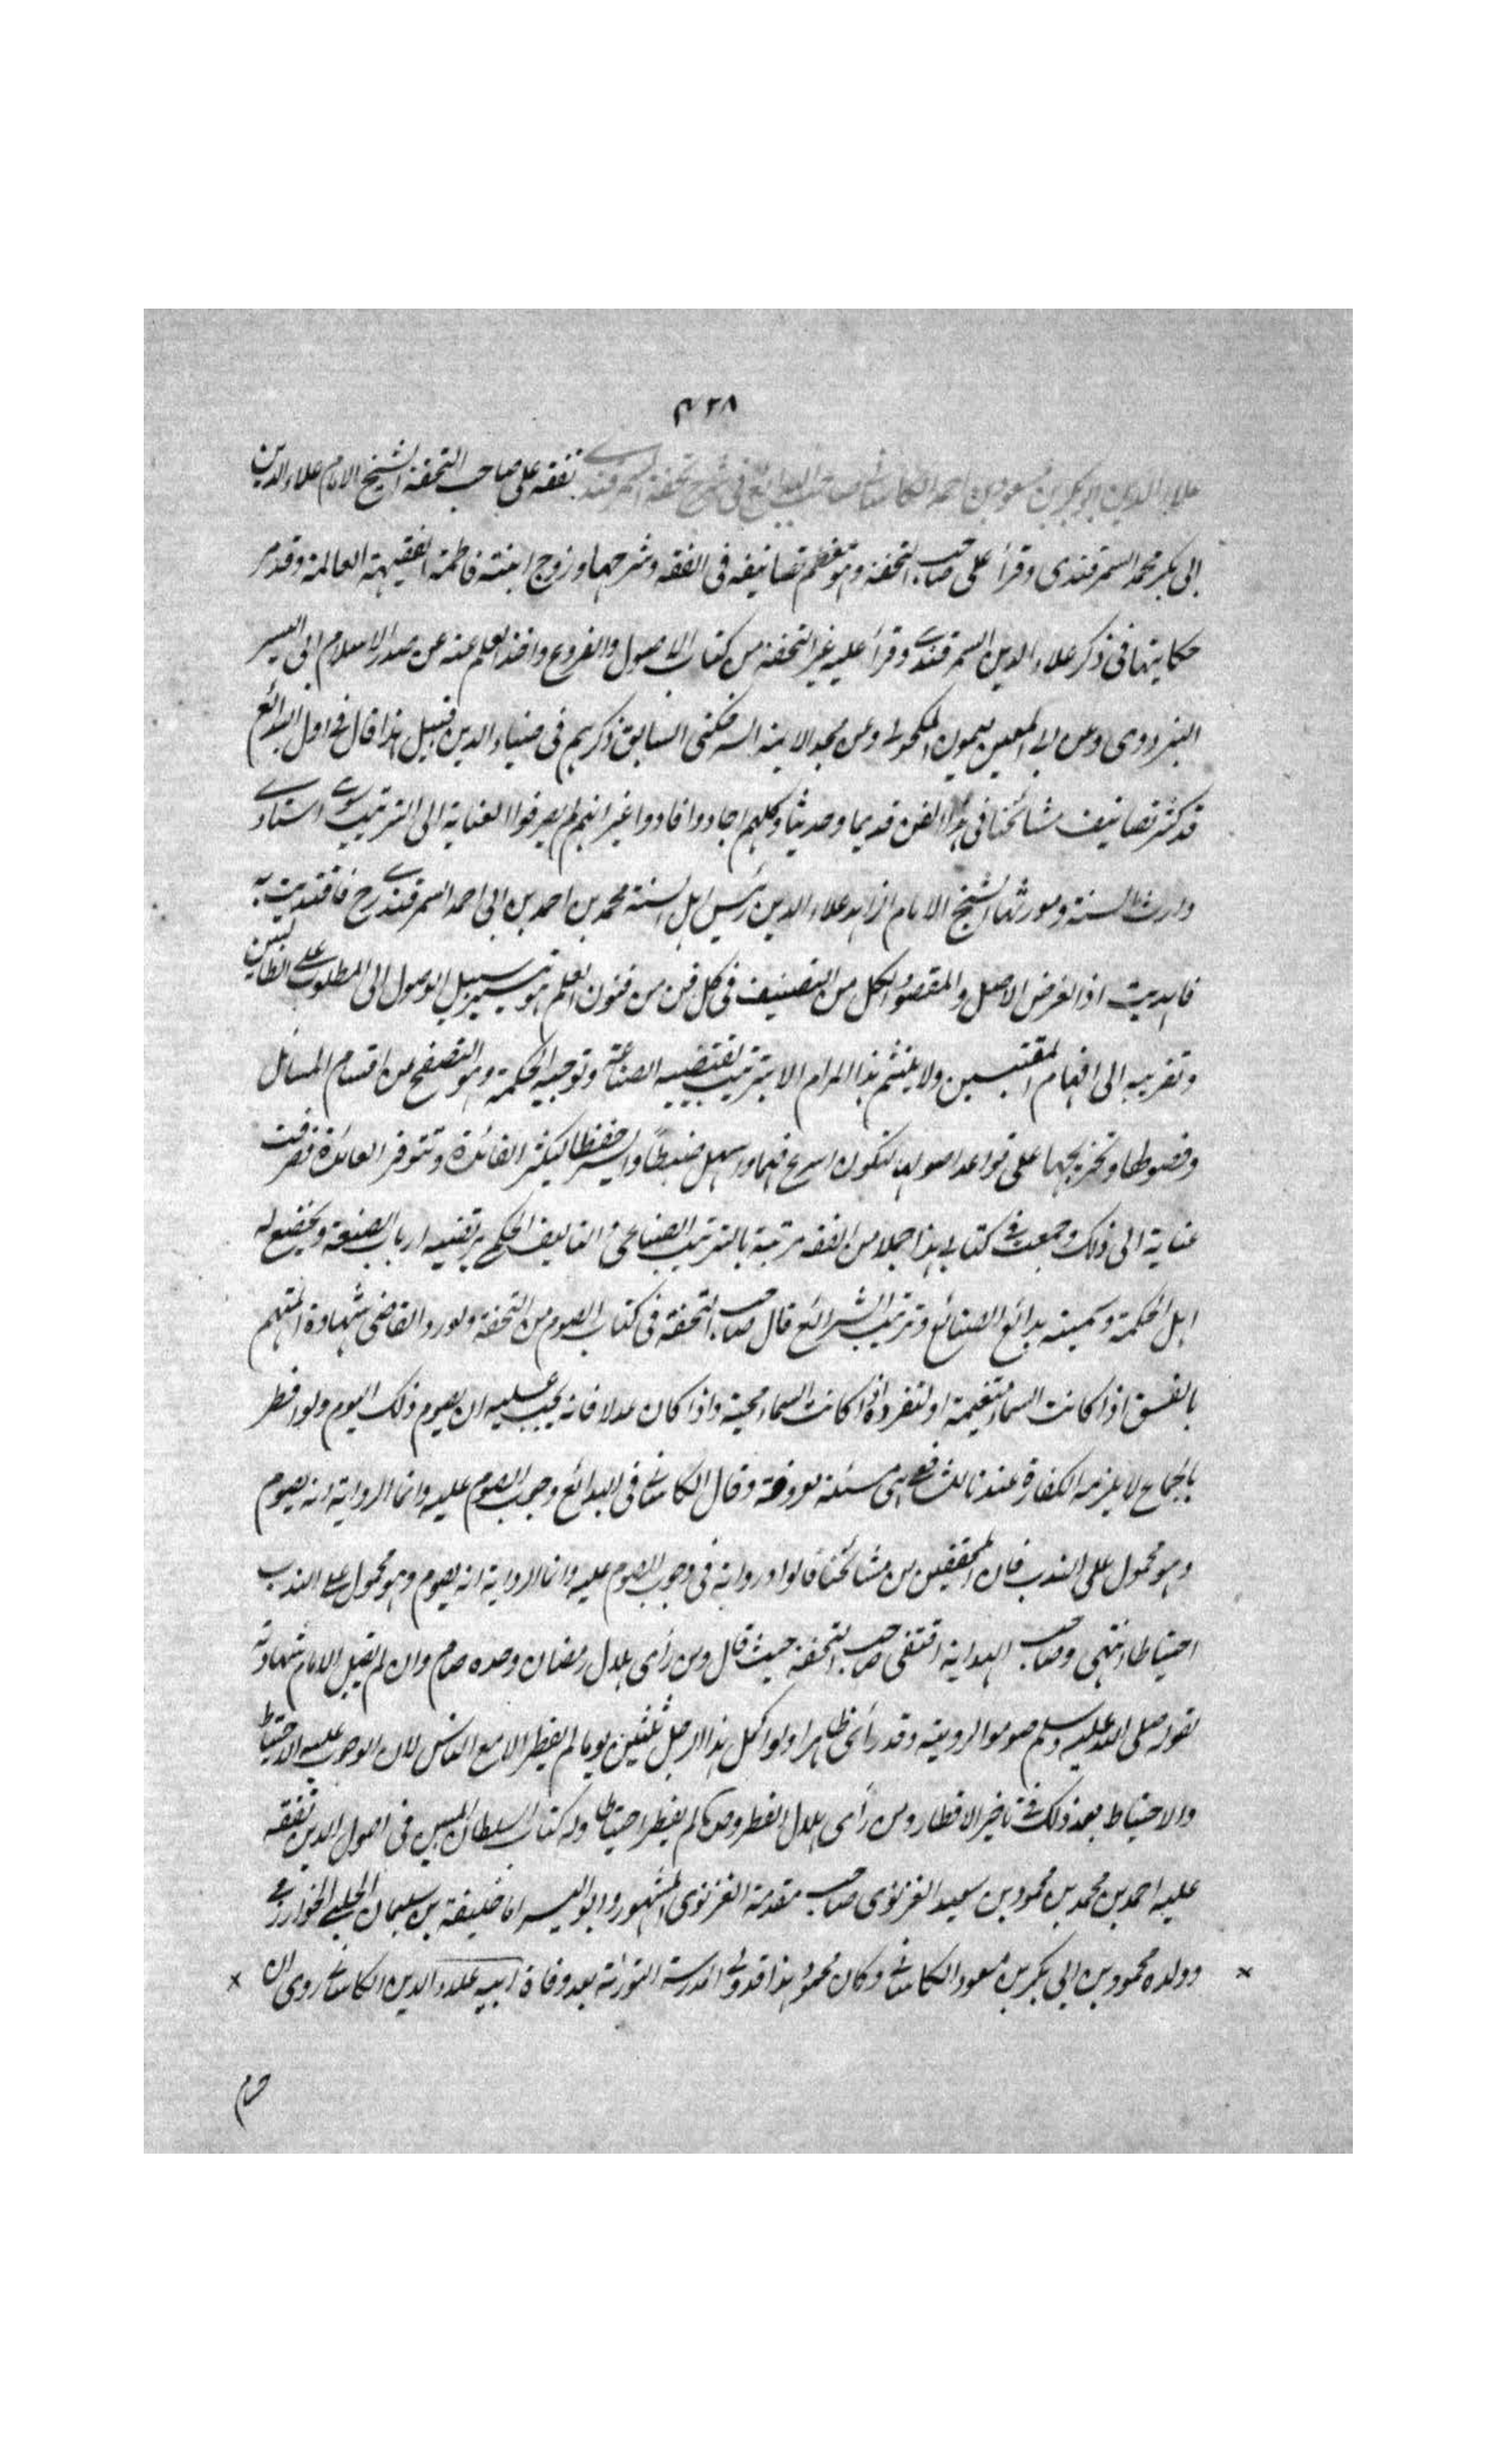 ٤٢٨
علاء الدين ابو بكر بن مسعود بن احمد الكاساني صاحب البدائع في شرح تحفة السمرقندي تفقه على صاحب التحفة الشيخ الامام علاء الدين
ابى بكر محمد السمرقندى وقرأ على صاحب التحفة وهو معظم تصانيفه فى الفقه وشرحها وزوج ابنته فاطمة الفقيهة العالمة وقد مر
حكايتها فى ذكر علاء الدين السمرقندى وقرأ عليه غير التحفة من كتاب الاصول والفروع واخذ العلم عنه عن صدر الاسلام ابى اليسر
البزدوى وعن ابى المعين ميمون المكحولى وعن مجد الائمة السرخكتى السابق ذكرهم فى ضياء الدين قبيل هذا قال فى اول البدائع
قد كثر تصانيف مشائخنا فى هذا الفن قديما وحديثا وكلهم اجادوا وافادوا غير انهم لم يصرفوا العناية الى الترتيب سوى استاذى
وارث السنة ومورثها الشيخ الامام الزاهد علاء الدين رئيس اهل السنة محمد بن احمد بن ابى احمد السمرقندى رح فاقتديت به
فاهديت اذ الغرض الاصلى والمقصود الكلى من التصنيف فى كل فن من فنون العلم هو تيسير سبيل الوصول الى المطلوب على الطالبين
وتقريبه الى افهام المقتبسين ولا يلتئم هذا المرام الا بترتيب تقتضيه الصناعة وتوجبه الحكمة وهو التصفح عن اقسام المسائل
وفصولها وتخريجها على قواعد اصولها لتكون اسرع فهما واسهل ضبطا وايسر حفظا ليكثر الفائدة وتتوفر العائدة فصرفت
عناية الى ذلك وجمعت فى كتابى هذا جملا من الفقه مرتبة بالترتيب الصناعى والتاليف الحكمى يرتضيه ارباب الصنعة ويخضع له
اهل الحكمة وسميته بدائع الصنائع وترتيب الشرائع قال صاحب التحفة فى كتاب الصوم من التحفة ولو رد القاضى شهادة المتهم
بالفسق اذا كانت السماء متغيمة او لتفرده اذا كانت السماء مصحية واذا كان عدلا فانه يجب عليه ان يصوم ذلك اليوم ولو افطر
بالجماع لا يلزمه الكفارة عندنا للشافعى هى مسئلة معروفة وقال الكاسانى فى البدائع وجوب الصوم عليه وانما الرواية انه يصوم
وهو محمول على الندب فان المحققين من مشائخنا قالوا لا رواية فى وجوب الصوم عليه وانما الرواية انه يصوم وهو محمول على الندب
احتياطا انتهى وصاحب الهداية اقتفى صاحب التحفة حيث قال ومن رأى هلال رمضان وحده صام وان لم يقبل الامام شهادته
لقوله صلى الله عليه وسلم صوموا لرويته وقد رأى ظاهرا ولو اكمل هذا الرجل ثلثين يوما لم يفطر الا مع الناس لان الوجوب عليه للاحتياط
والاحتياط بعد ذلك فى تاخير الافطار ومن رأى هلال الفطر وحده لم يفطر احتياطا وله كتاب السلطان المبين فى اصول الدين تفقه
عليه احمد بن محمد بن محمود بن سعيد الغزنوى صاحب مقدمة الغزنوى المشهور وابو اليسر انا خليفة بن سليمان الحلبى الخوارزمى
وولده محمود بن ابى بكر بن مسعود الكاسانى وكان محمود هذا قد ولى المدرسة النورية بعد وفاة ابيه علاء الدين الكاسانى روى ان